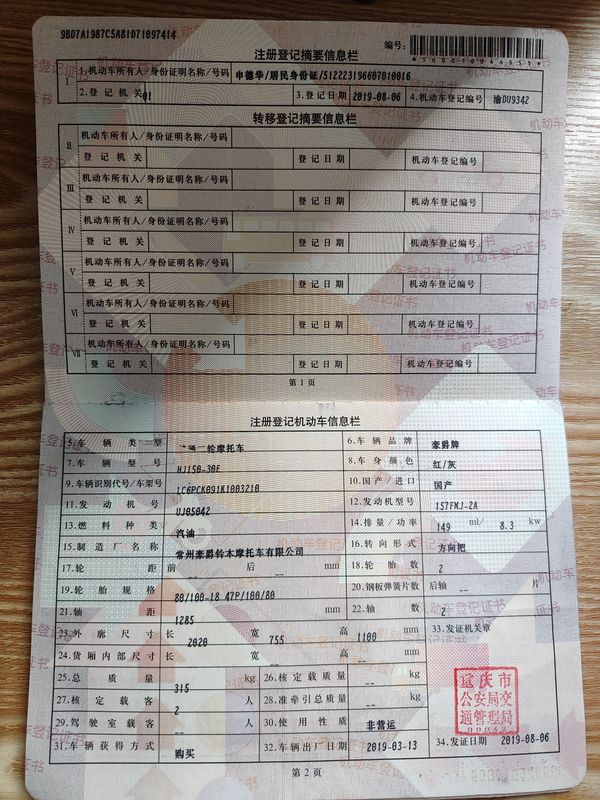 9BD7A1987C5A81D71097414
编号:
*50001004655*
注册登记摘要信息栏
I 1.机动车所有人/身份证明名称/号码 申德华/居民身份证/512223196607010016
2.登记机关 01 3.登记日期 2019-08-06 4.机动车登记编号 渝DU9342
转移登记摘要信息栏
II 机动车所有人/身份证明名称/号码
登记机关 登记日期 机动车登记编号
III 机动车所有人/身份证明名称/号码
登记机关 登记日期 机动车登记编号
IV 机动车所有人/身份证明名称/号码
登记机关 登记日期 机动车登记编号
V 机动车所有人/身份证明名称/号码
登记机关 登记日期 机动车登记编号
VI 机动车所有人/身份证明名称/号码
登记机关 登记日期 机动车登记编号
VII 机动车所有人/身份证明名称/号码
登记机关 登记日期 机动车登记编号
第1页
注册登记机动车信息栏
5.车辆类型 普通二轮摩托车 6.车辆品牌 豪爵牌
7.车辆型号 HJ150-30F 8.车身颜色 红/灰
9.车辆识别代号/车架号 LC6PCK091K1003210 10.国产/进口 国产
11.发动机号 UJ05042 12.发动机型号 157FMJ-2A
13.燃料种类 汽油 14.排量/功率 149 ml/ 8.3 kw
15.制造厂名称 常州豪爵铃木摩托车有限公司 16.转向形式 方向把
17.轮距 前 -- 后 -- mm 18.轮胎数 2
19.轮胎规格 80/100-18 47P/100/80 20.钢板弹簧片数 后轴 -- 片
21.轴距 1285 mm 22.轴数 2
23.外廓尺寸 长 2020 宽 755 高 1100 mm 33.发证机关章
24.货厢内部尺寸 长 -- 宽 -- 高 -- mm
25.总质量 315 kg 26.核定载质量 -- kg
27.核定载客 2 人 28.准牵引总质量 -- kg
29.驾驶室载客 -- 人 30.使用性质 非营运
31.车辆获得方式 购买 32.车辆出厂日期 2019-03-13 34.发证日期 2019-08-06
重庆市
公安局交
通管理局
00042
第2页